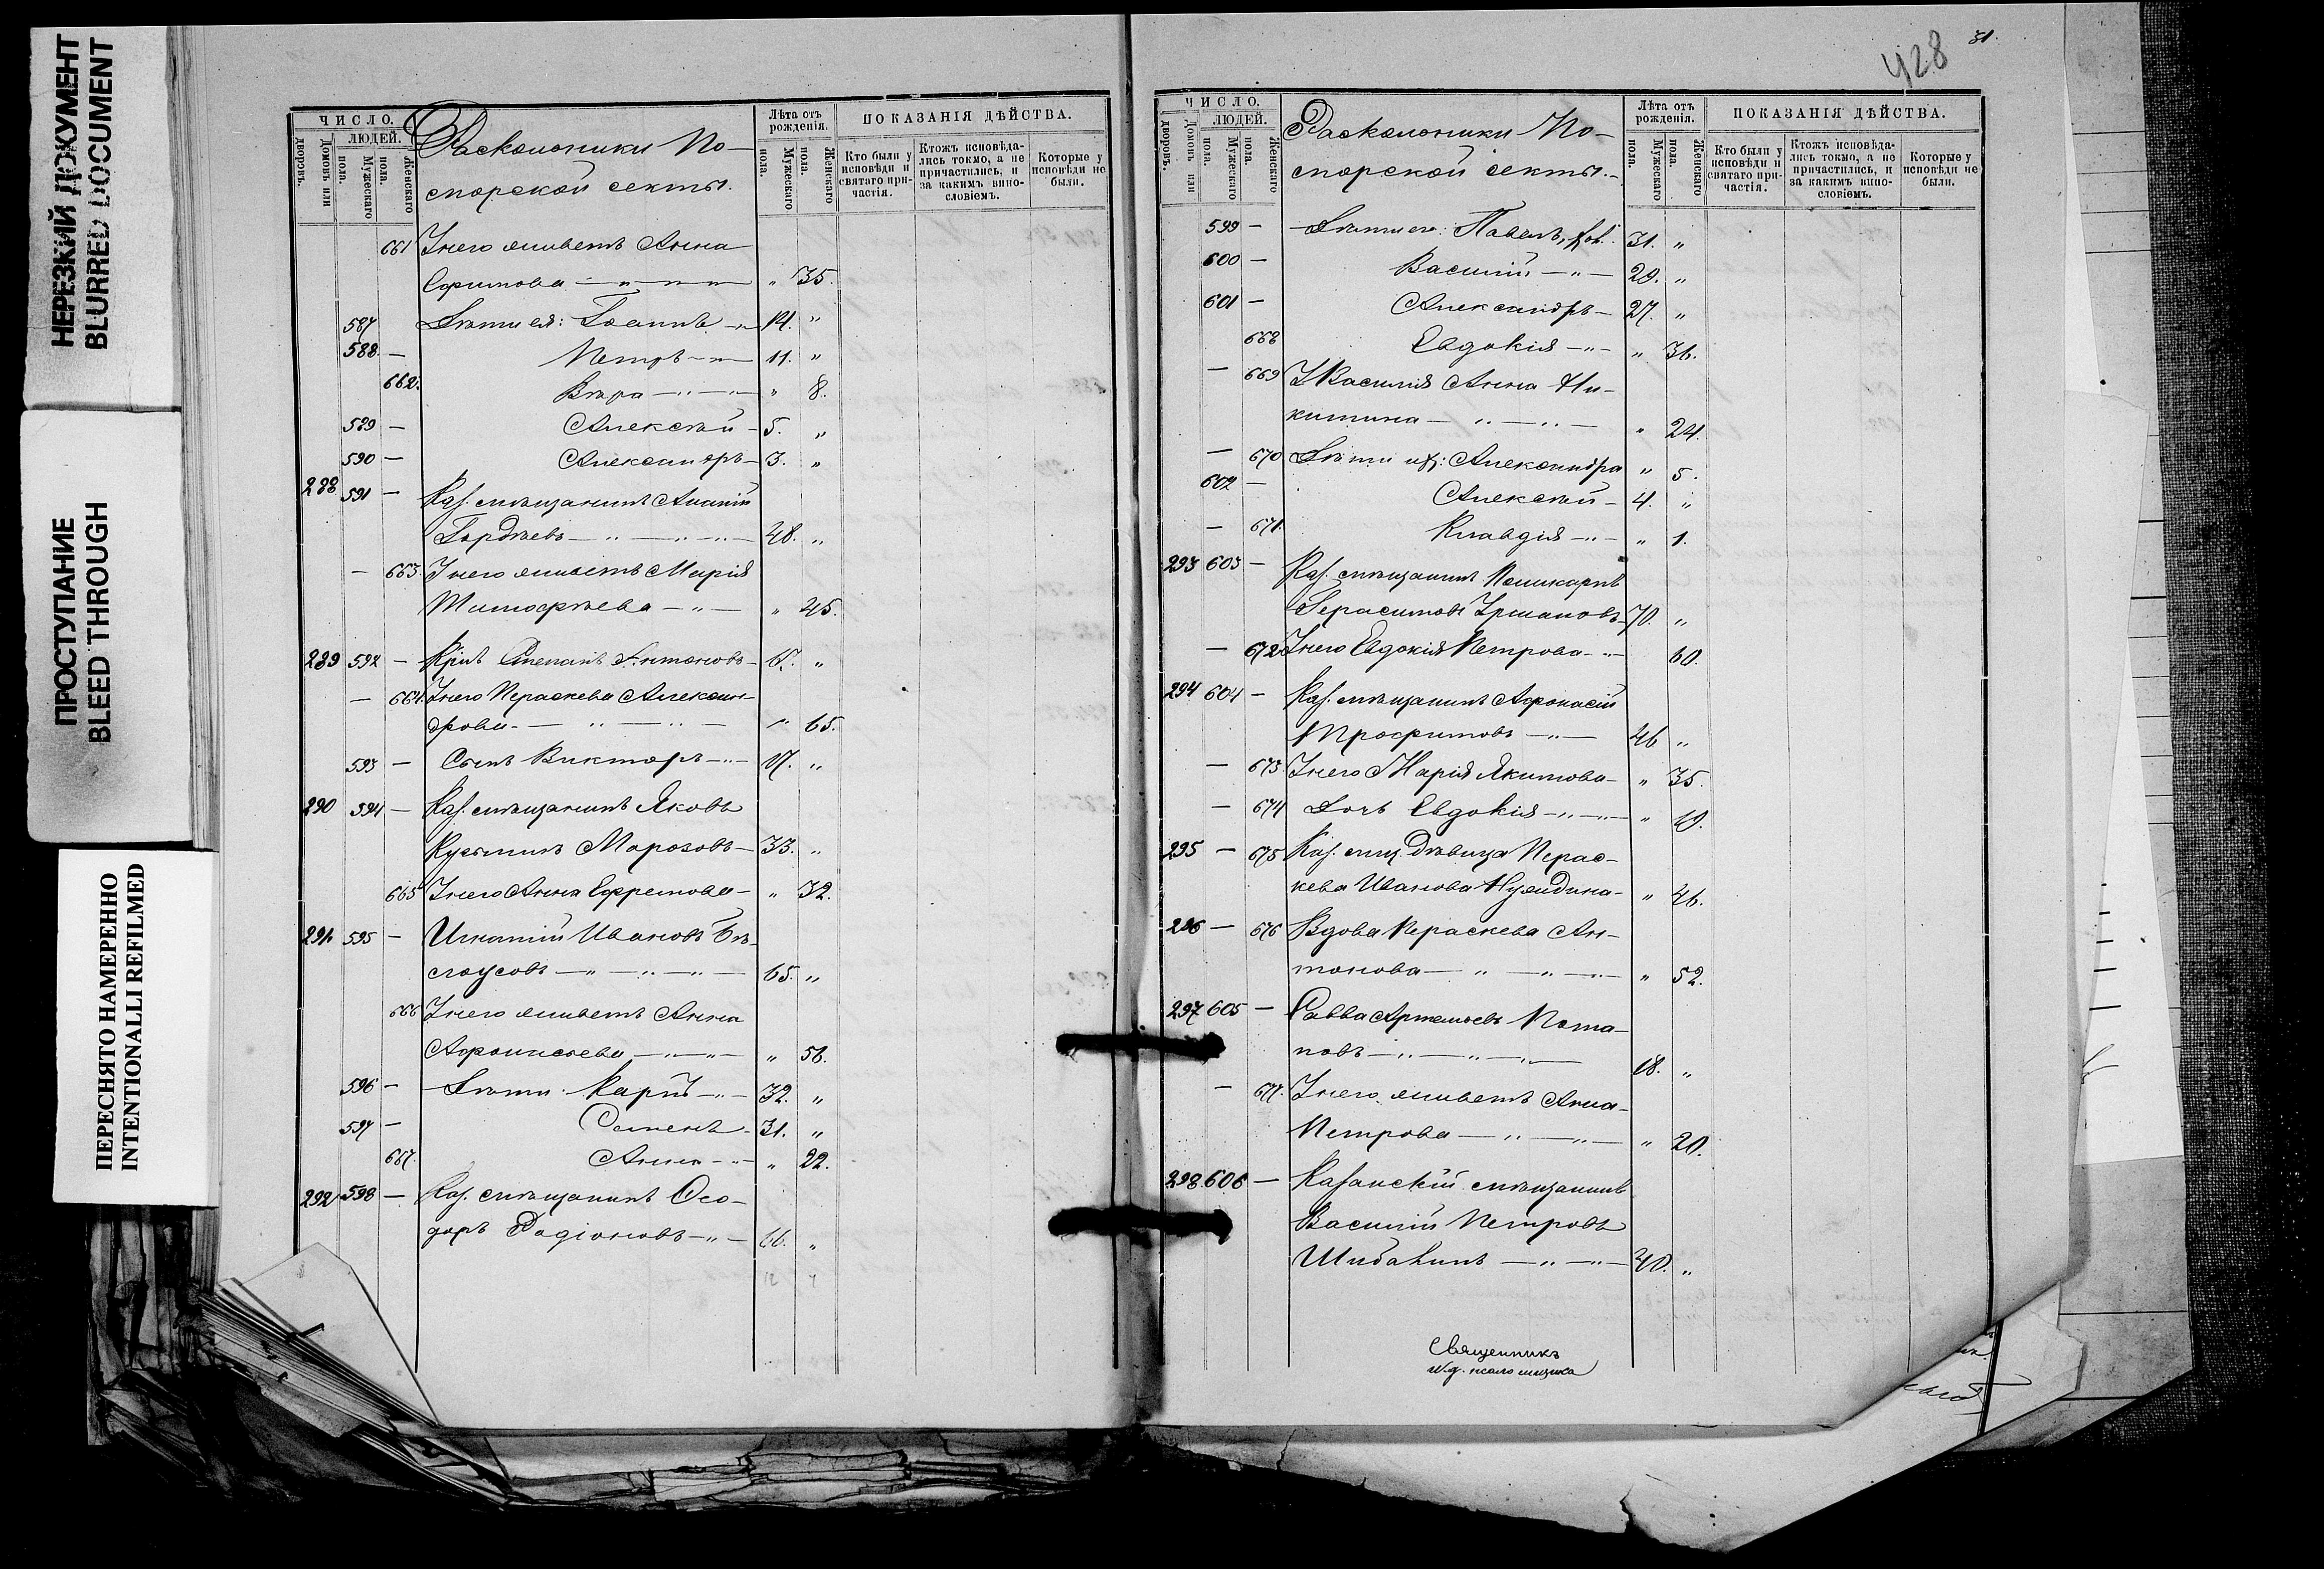 НЕРЕЗКИЙ ДОКУМЕНТ
BLURRED DOCUMENT
ПРОСТУПАНИЕ
BLEED THROUGH
ПЕРЕСНЯТО НАМЕРЕННО
INTENTIONALLI REFILMED
ЧИСЛО.
ЛЮДЕЙ.
Домовъ или дворовъ.
Мужескаго пола.
Женскаго пола.
Раскольники По-
морской секты.
Лѣта отъ рожденія.
Мужескаго пола.
Женскаго пола.
ПОКАЗАНІЯ ДѢЙСТВА.
Кто были у исповѣди и святаго при-частія.
Ктожъ исповѣда-лись токмо, а не причастились, и за какимъ вино-словіемъ.
Которые у исповѣди не были.
661 У него живетъ Анна
Ефимова — „ „ 35.
587 Дѣти ея: Іоаннъ — 14. „
588. — Петръ — 11. „
662. Вѣра — „ — „ 8.
589 — Алексѣй — 5. „
590 — Александръ — 3. „
288 591 — Каз. мѣщанинъ Ананій
Гордѣевъ — „ — „ — 48. „
— 663. У него живетъ Марія
Тимофѣева — „ — „ 45.
289 592 — Кр-нъ Степанъ Антоновъ — 67. „
— 664. У него Пераскева Алексан-
дрова — „ — „ — „ 65.
593 — Сынъ Викторъ — „ — 17. „
290 594 — Каз. мѣщанинъ Яковъ
Кузьминъ Морозовъ — 33. „
665 У него Анна Ефремова — „ 32.
291. 595 — Игнатій Ивановъ Бѣ-
лоусовъ — „ — „ — „ — 65. „
666 У него живетъ Анна
Афонасьева — „ — „ — „ 56.
596 — Дѣти: Карпъ — „ — 32. „
597 — Семенъ — 31. „
667. Анна — „ — „ 22.
292 598 — Каз. мѣщанинъ Ѳео-
доръ Родіоновъ — „ — 66. „
428
31.
ЧИСЛО.
ЛЮДЕЙ.
Домовъ или дворовъ.
Мужескаго пола.
Женскаго пола.
Раскольники По-
морской секты. —
Лѣта отъ рожденія.
Мужескаго пола.
Женскаго пола.
ПОКАЗАНІЯ ДѢЙСТВА.
Кто были у исповѣди и святаго при-частія.
Ктожъ исповѣда-лись токмо, а не причастились, и за какимъ вино-словіемъ.
Которые у исповѣди не были.
599 — Дѣти его: Павелъ, 31. „
600 — Василій — „ — 29. „
601 — Александръ — 27. „
668 Евдокія — „ — „ 36.
— 669 У Василія Анна Ни-
китина — „ — „ — „ 24.
— 670 Дѣти ихъ: Александра „ 5.
602 — Алексѣй — 4. „
— 671. Клавдія — „ — „ 1.
293 603 — Каз. мѣщанинъ Поликарпъ
Герасимовъ Урмановъ — 70. „
— 672 У него Евдокія Петрова — „ — 60.
294 604 — Каз. мѣщанинъ Афонасій
Трофимовъ — „ — 46 „
— 673 У него Марія Якимова — „ 35.
— 674 Дочь Евдокія — „ — „ 10.
295 — 675 Каз. мѣщ. дѣвица Перас-
кева Иванова — „ 46.
296 — 676 Вдова Пераскева Ан-
тонова — „ — „ — „ — „ 52.
297 605 — Савва Артемьевъ Пота-
повъ — „ — „ — „ — 18. „
— 677. У него живетъ Анна
Петрова — „ — „ — „ 20.
298. 606 — Казанскій мѣщанинъ
Василій Петровъ
Шибакинъ — „ — „ — 40. „
Священникъ
и. д. псаломщика